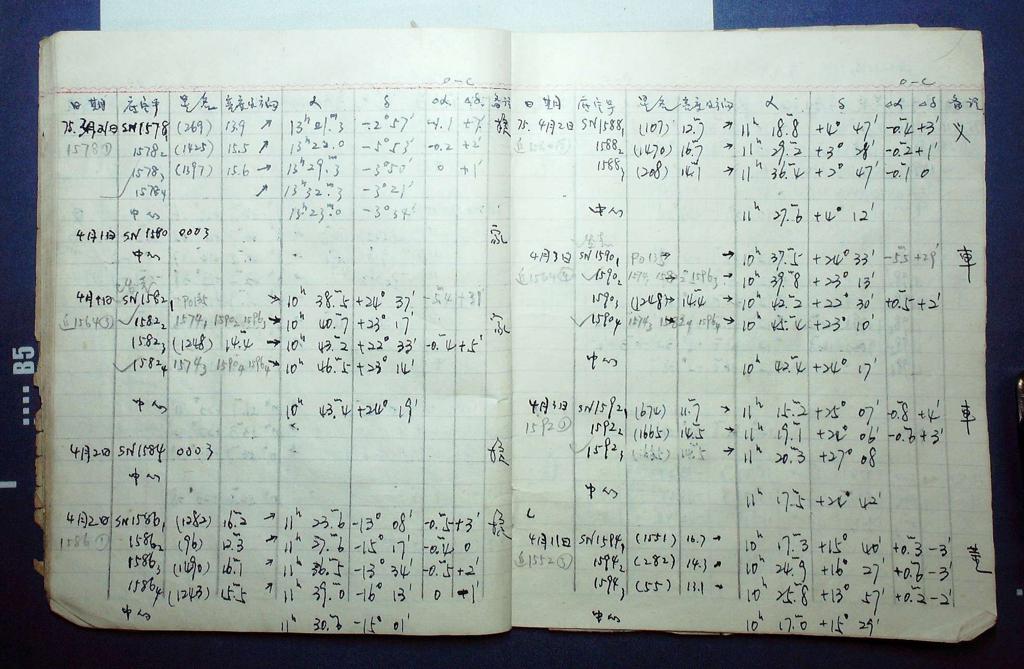 O-C
日期 底片号 星名 亮度及方向 α δ Δα Δδ 备注
75.3月21日 SN1578₁ (269) 13.9 ↗ 13ʰ 21ᵐ.3 -2° 57′
1578① 1578₂ (1425) 15.5 ↗ 13ʰ 22ᵐ.0 -5° 53′ -0.2 +2′
1578₃ (1397) 15.6 → 13ʰ 29ᵐ.3 -3° 50′ 0 +1′
1578₄ ↗ 13ʰ 32ᵐ.3 -3° 21′
中心 13ʰ 23ᵐ.0 -3° 34′
4月1日 SN1580 0003
中心
4月1日 SN1582₁ P0135 → 10ʰ 38ᵐ.5 +24° 37′
近1564③ 1582₂ 1574₁ 1590₂ 1596₃ → 10ʰ 40ᵐ.7 +23° 17′
1582₃ (1248) 14.4 → 10ʰ 43ᵐ.2 +22° 33′ -0.4 +5′
1582₄ 1574₃ 1590₄ 1596₄ → 10ʰ 46ᵐ.5 +23° 14′
中心 10ʰ 43ᵐ.4 +24° 19′
4月2日 SN1584 0003
中心
4月2日 SN1586₁ (1282) 16.2 → 11ʰ 23ᵐ.6 -13° 08′ -0.5 +3′
1586① 1586₂ (96) 12.3 → 11ʰ 27.6 -15° 17′ -0.4 0
1586₃ (1490) 16.7 → 11ʰ 36.5 -13° 34′ -0.5 +2′
1586₄ (1243) 15.5 → 11ʰ 39.0 -16° 13′ 0 +1′
中心 11ʰ 30.6 -15° 01′
O-C
日期 底片号 星名 亮度及方向 α δ Δα Δδ 备注
75.4月2日 SN1588₁ (107) 12.7 → 11ʰ 18.8 +4° 47′ -0.4 +3′
1588₂ (1470) 16.7 → 11ʰ 29.2 +3° 28′ -0.2 +1′
1588₃ (208) 14.1 → 11ʰ 36.4 +2° 47′ -0.1 0
中心 11ʰ 27.6 +4° 12′
4月3日 SN1590₁ P0135 → 10ʰ 37.5 +24° 33′ -5.5 +29′ 車
1590₂ 1574₁ 1582₂ 1596₃ → 10ʰ 39.8 +23° 13′
1590₃ (1248) 14.4 10ʰ 42.2 +22° 30′ +0.5 +2′
1590₄ 1574₃ 1582₄ 1596₄ → 10ʰ 45.4 +23° 10′
中心 10ʰ 42.4 +24° 17′
4月3日 SN1592₁ (674) 11.7 11ʰ 15.2 +25° 07′ -0.8 +4′ 車
1592① 1592₂ (1665) 14.5 → 11ʰ 19.1 +26′ +3′
1592₃ → 11ʰ 20.3 +27° 08
中心 11ʰ 17.5 42′
4月11日 SN1594₁ (1551) 16.7 → 10ʰ 17.3 +15° 40′ +0.3 -3′
近1552⑤ 1594₂ (282) 14.3 → 10ʰ 24.9 +16° 27′ +0.6 -3′
1594₃ (55) 13.1 → 10ʰ 25.8 +13° 57′ +0.2 -2′
中心 10ʰ 17.0 +15° 29′
B5